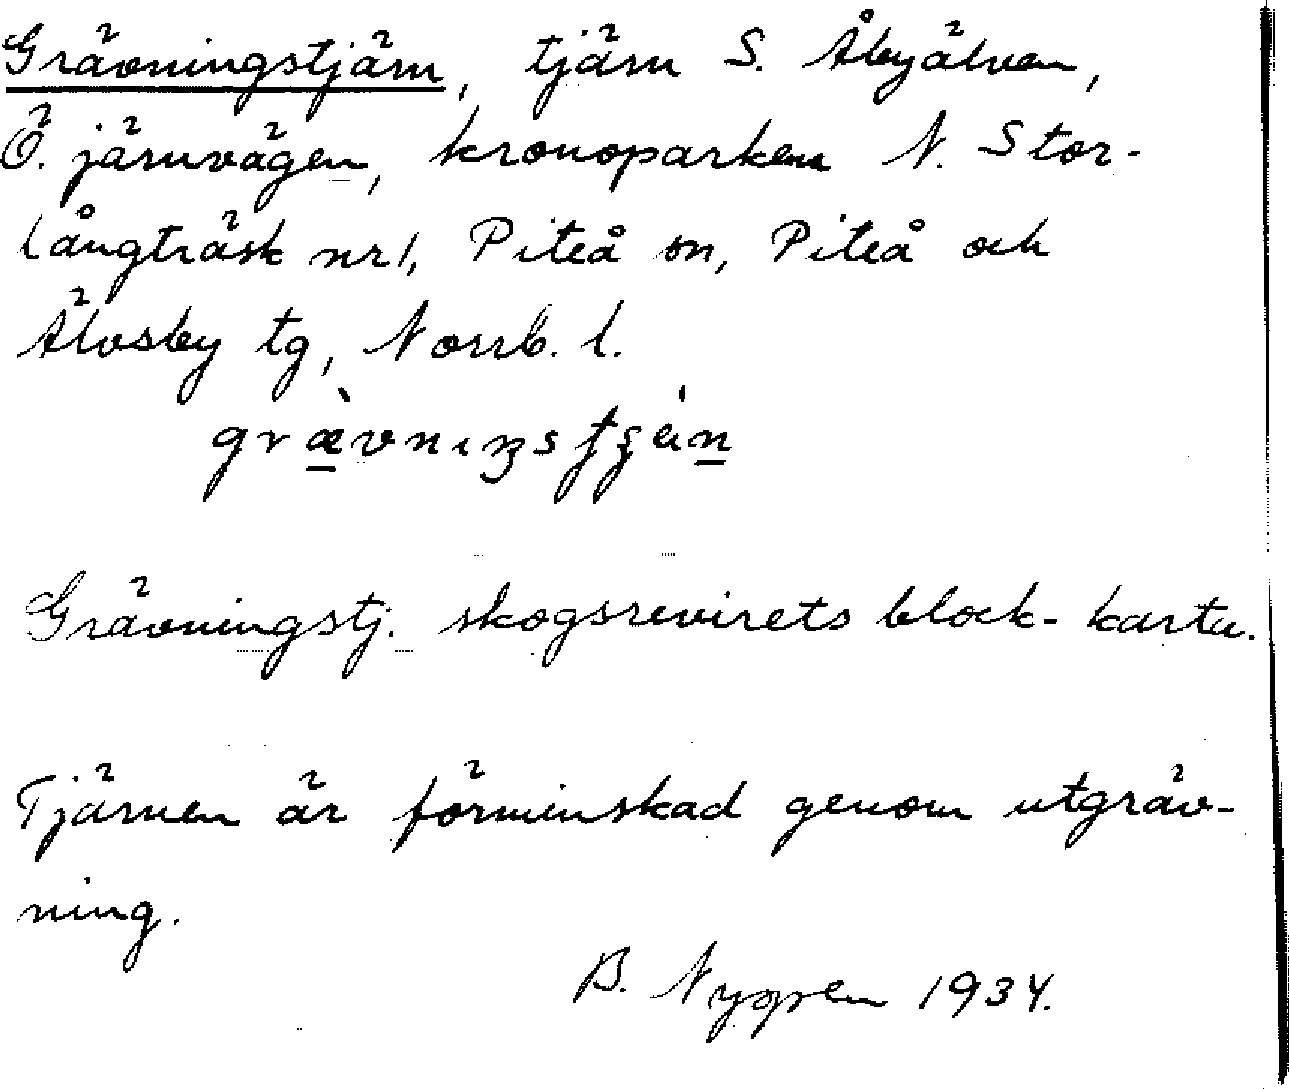 Grävningstjärn, tjärn S. Åbyälven,
Ö. järnvägen, kronoparken N. Stor-
långträsk nr 1, Piteå sn, Piteå och
Älvsby tg, Norrb. l.
Grävningstj. skogsrevirets block-karta.
Tjärnen är förminskad genom utgräv-
ning.
B. Nygren 1934.